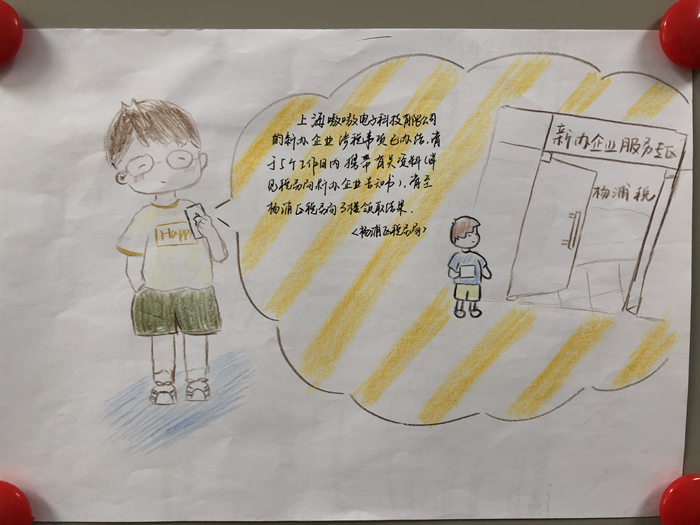 上海嗷嗷电子科技有限公司
的新办企业涉税事项已办结,请
于5个工作日内携带有关资料(详
见税局向新办企业告知书),前至
杨浦区税局窗口领取结果.
<杨浦区税务局>
新办企业服务专区
杨浦税
Happy